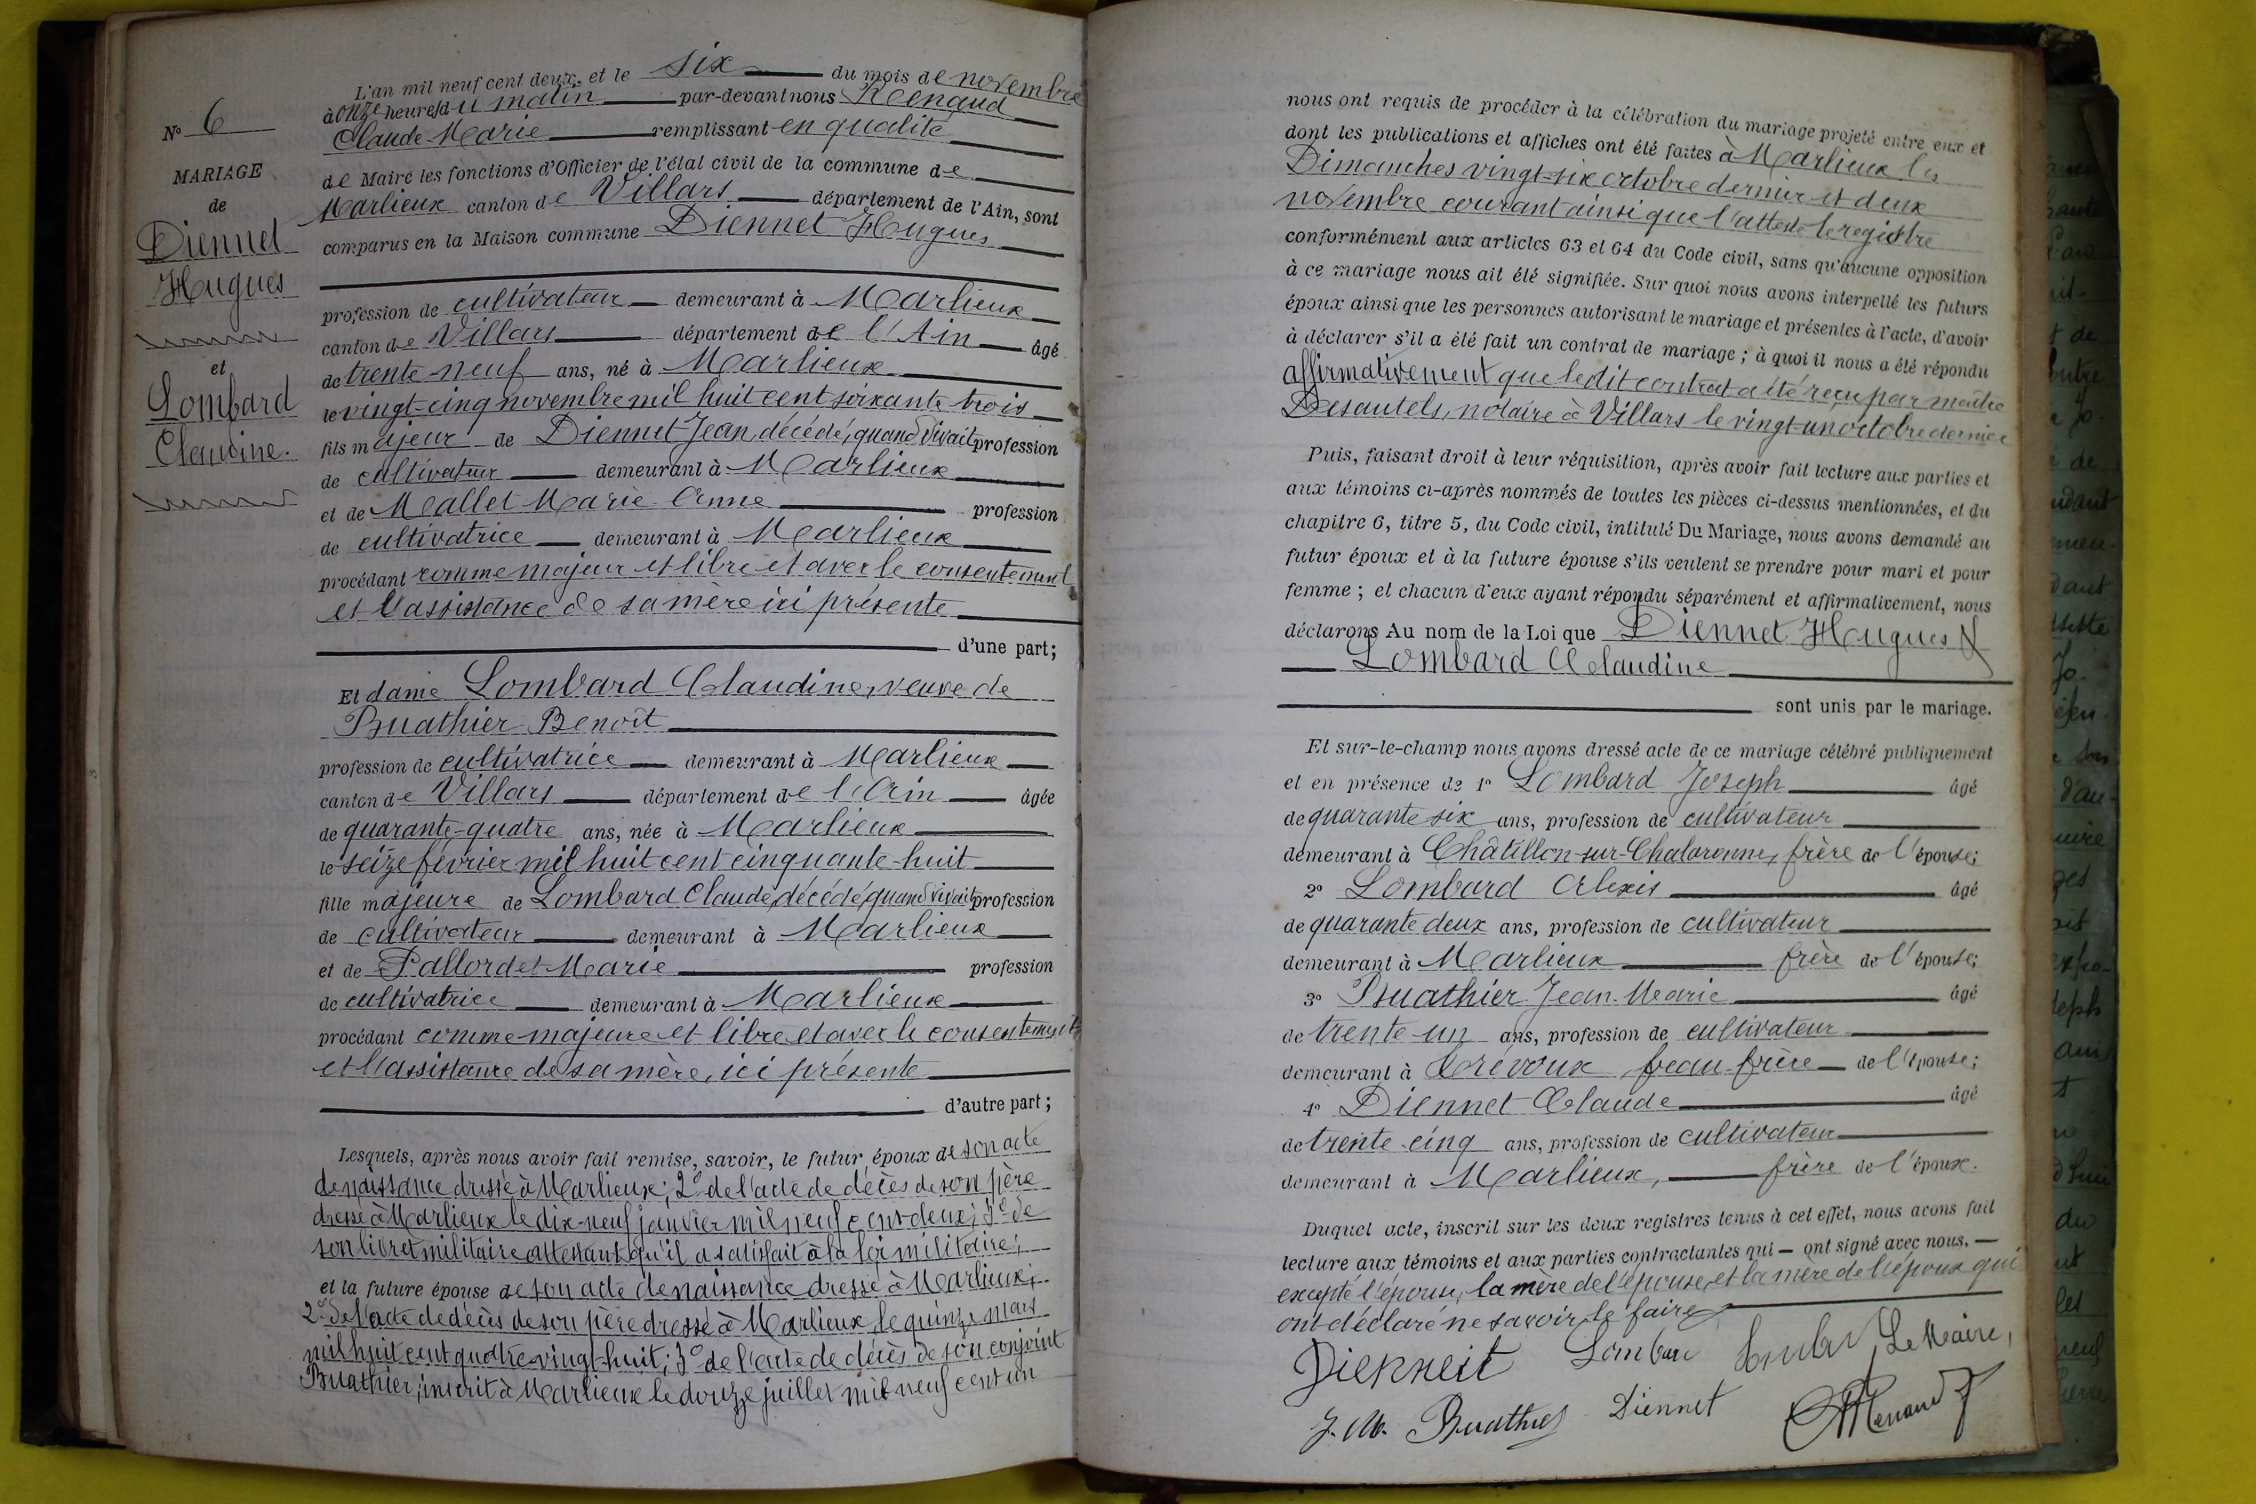 L'an mil neuf cent deux et le six du mois de novembre
à onze heures du matin par-devant nous Renaud
Claude-Marie remplissant en qualité
de Maire les fonctions d'Officier de l'état civil de la commune de
Marlieux canton de Villars département de l'Ain, sont
comparus en la Maison commune Diennet Hugues
profession de cultivateur demeurant à Marlieux
canton de Villars département de l'Ain âgé
de trente neuf ans, né à Marlieux
le vingt-cinq novembre mil huit cent soixante trois
fils majeur de Diennet Jean, décédé, quand vivait profession
de cultivateur demeurant à Marlieux
et de Mallet Marie Anne profession
de cultivatrice demeurant à Marlieux
procédant comme majeur et libre et avec le consentement
et l'assistance de sa mère ici présente
d'une part;
Et dame Lombard Claudine, veuve de
Buathier Benoît
profession de cultivatrice demeurant à Marlieux
canton de Villars département de l'Ain âgée
de quarante-quatre ans, née à Marlieux
le seize février mil huit cent cinquante-huit
fille majeure de Lombard Claude, décédé, quand vivait profession
de cultivateur demeurant à Marlieux
et de Pallordet Marie profession
de cultivatrice demeurant à Marlieux
procédant comme majeure et libre et avec le consentement
et l'assistance de sa mère, ici présente
d'autre part;
Lesquels, après nous avoir fait remise, savoir, le futur époux de son acte
de naissance dressé à Marlieux; 2° de l'acte de décès de son père
dressé à Marlieux le dix-neuf janvier mil neuf cent deux; 3° de
son livret militaire attestant qu'il a satisfait à la loi militaire;
et la future épouse de son acte de naissance dressé à Marlieux;
2° de l'acte de décès de son père dressé à Marlieux le quinze mars
mil huit cent quatre-vingt-huit; 3° de l'acte de décès de son conjoint
Buathier, inscrit à Marlieux le douze juillet mil neuf cent un
N° 6
MARIAGE
de
Diennet
Hugues
et
Lombard
Claudine.
nous ont requis de procéder à la célébration du mariage projeté entre eux et
dont les publications et affiches ont été faites à Marlieux les
Dimanches vingt-six octobre dernier et deux
novembre courant ainsi que l'atteste le registre
conformément aux articles 63 et 64 du Code civil, sans qu'aucune opposition
à ce mariage nous ait été signifiée. Sur quoi nous avons interpellé les futurs
époux ainsi que les personnes autorisant le mariage et présentes à l'acte, d'avoir
à déclarer s'il a été fait un contrat de mariage; à quoi il nous a été répondu
affirmativement que ledit contrat a été reçu par maître
Desautels, notaire à Villars le vingt-un octobre dernier
Puis, faisant droit à leur réquisition, après avoir fait lecture aux parties et
aux témoins ci-après nommés de toutes les pièces ci-dessus mentionnées, et du
chapitre 6, titre 5, du Code civil, intitulé Du Mariage, nous avons demandé au
futur époux et à la future épouse s'ils veulent se prendre pour mari et pour
femme; et chacun d'eux ayant répondu séparément et affirmativement, nous
déclarons Au nom de la Loi que Diennet Hugues &
Lombard Claudine
sont unis par le mariage.
Et sur-le-champ nous avons dressé acte de ce mariage célébré publiquement
et en présence de 1° Lombard Joseph âgé
de quarante six ans, profession de cultivateur
demeurant à Châtillon-sur-Chalaronne, frère de l'épouse;
2° Lombard Alexis âgé
de quarante deux ans, profession de cultivateur
demeurant à Marlieux frère de l'épouse;
3° Buathier Jean-Marie âgé
de trente-un ans, profession de cultivateur
demeurant à Trévoux beau-frère de l'épouse;
4° Diennet Claude âgé
de trente-cinq ans, profession de cultivateur
demeurant à Marlieux, frère de l'époux.
Duquel acte, inscrit sur les deux registres tenus à cet effet, nous avons fait
lecture aux témoins et aux parties contractantes qui ont signé avec nous,
excepté l'épouse, la mère de l'épouse et la mère de l'époux qui
ont déclaré ne savoir le faire
Diennet Lombard Le Maire,
J. M. Buathier Diennet Renaud